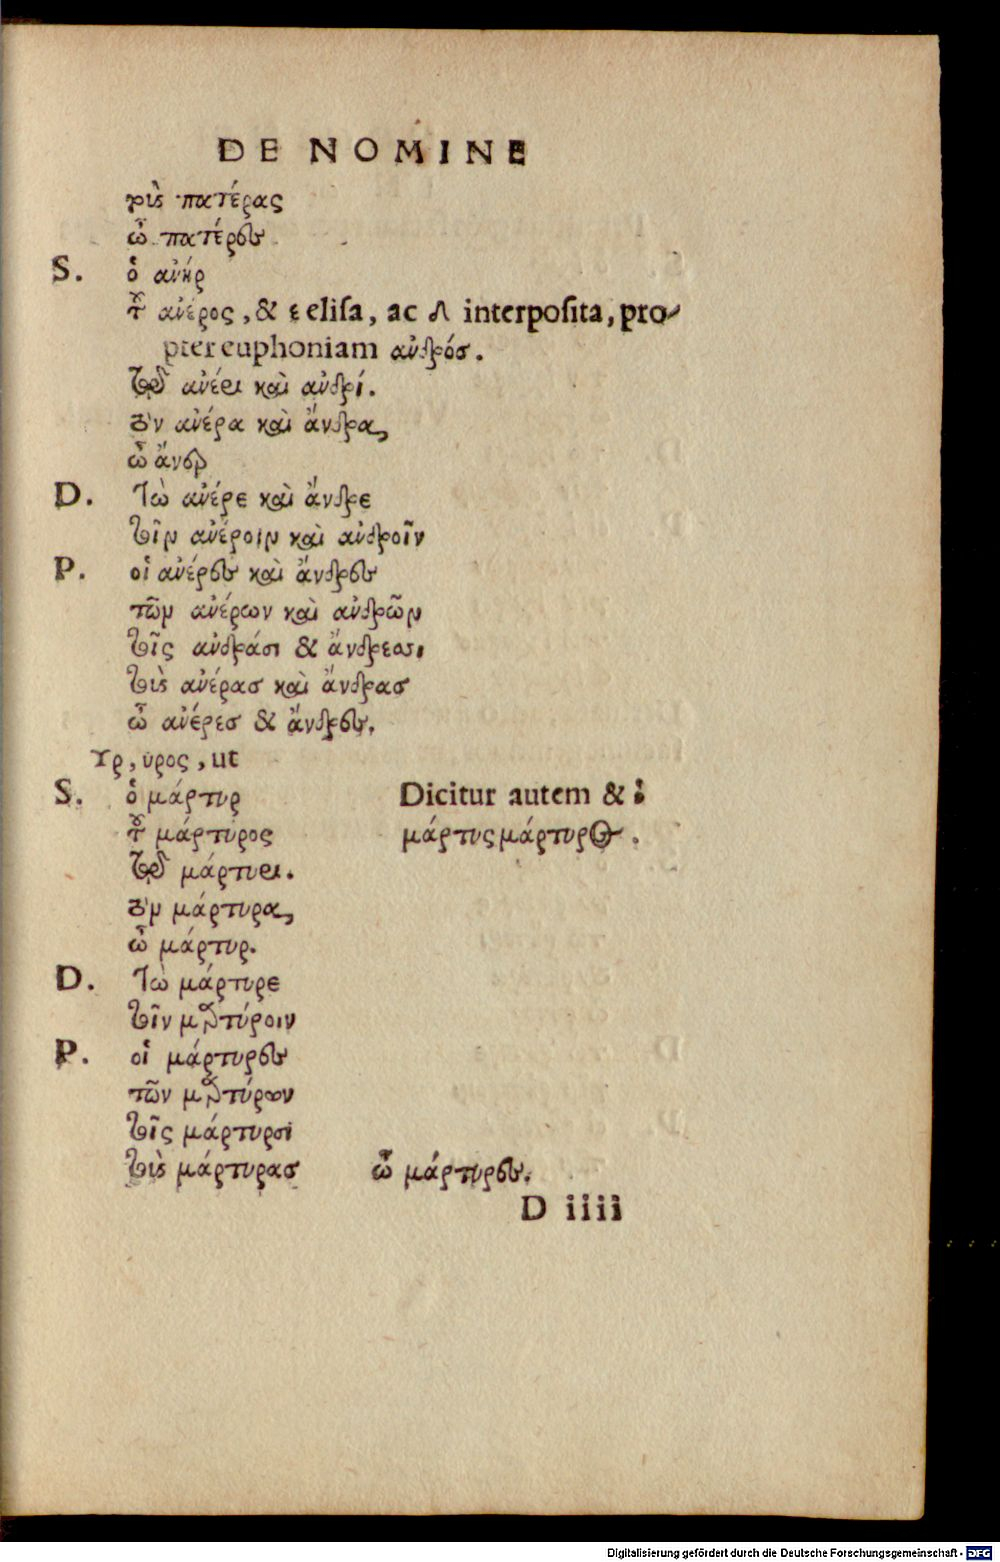 DE NOMINE
τοὺς πατέρας
ὦ πατέρες
S. ὁ ἀνήρ
τοῦ ἀνέρος, & ε elisa, ac δ interposita, pro-
pter euphoniam ἀνδρός.
τῷ ἀνέρι καὶ ἀνδρί.
τὸν ἀνέρα καὶ ἄνδρα,
ὦ ἄνερ
D. τὼ ἀνέρε καὶ ἄνδρε
τοῖν ἀνέροιν καὶ ἀνδροῖν
P. οἱ ἀνέρες καὶ ἄνδρες
τῶν ἀνέρων καὶ ἀνδρῶν
τοῖς ἀνδράσι & ἄνδρεσι
τοὺς ἀνέρας καὶ ἄνδρας
ὦ ἀνέρες & ἄνδρες.
Υρ, υρος, ut
S. ὁ μάρτυρ Dicitur autem & ὁ
τοῦ μάρτυρος μάρτυς μάρτυρος.
τῷ μάρτυρι.
τὸν μάρτυρα,
ὦ μάρτυρ.
D. τὼ μάρτυρε
τοῖν μαρτύροιν
P. οἱ μάρτυρες
τῶν μαρτύρων
τοῖς μάρτυρσι
τοὺς μάρτυρας ὦ μάρτυρες.
D iiii
Digitalisierung gefördert durch die Deutsche Forschungsgemeinschaft - DFG